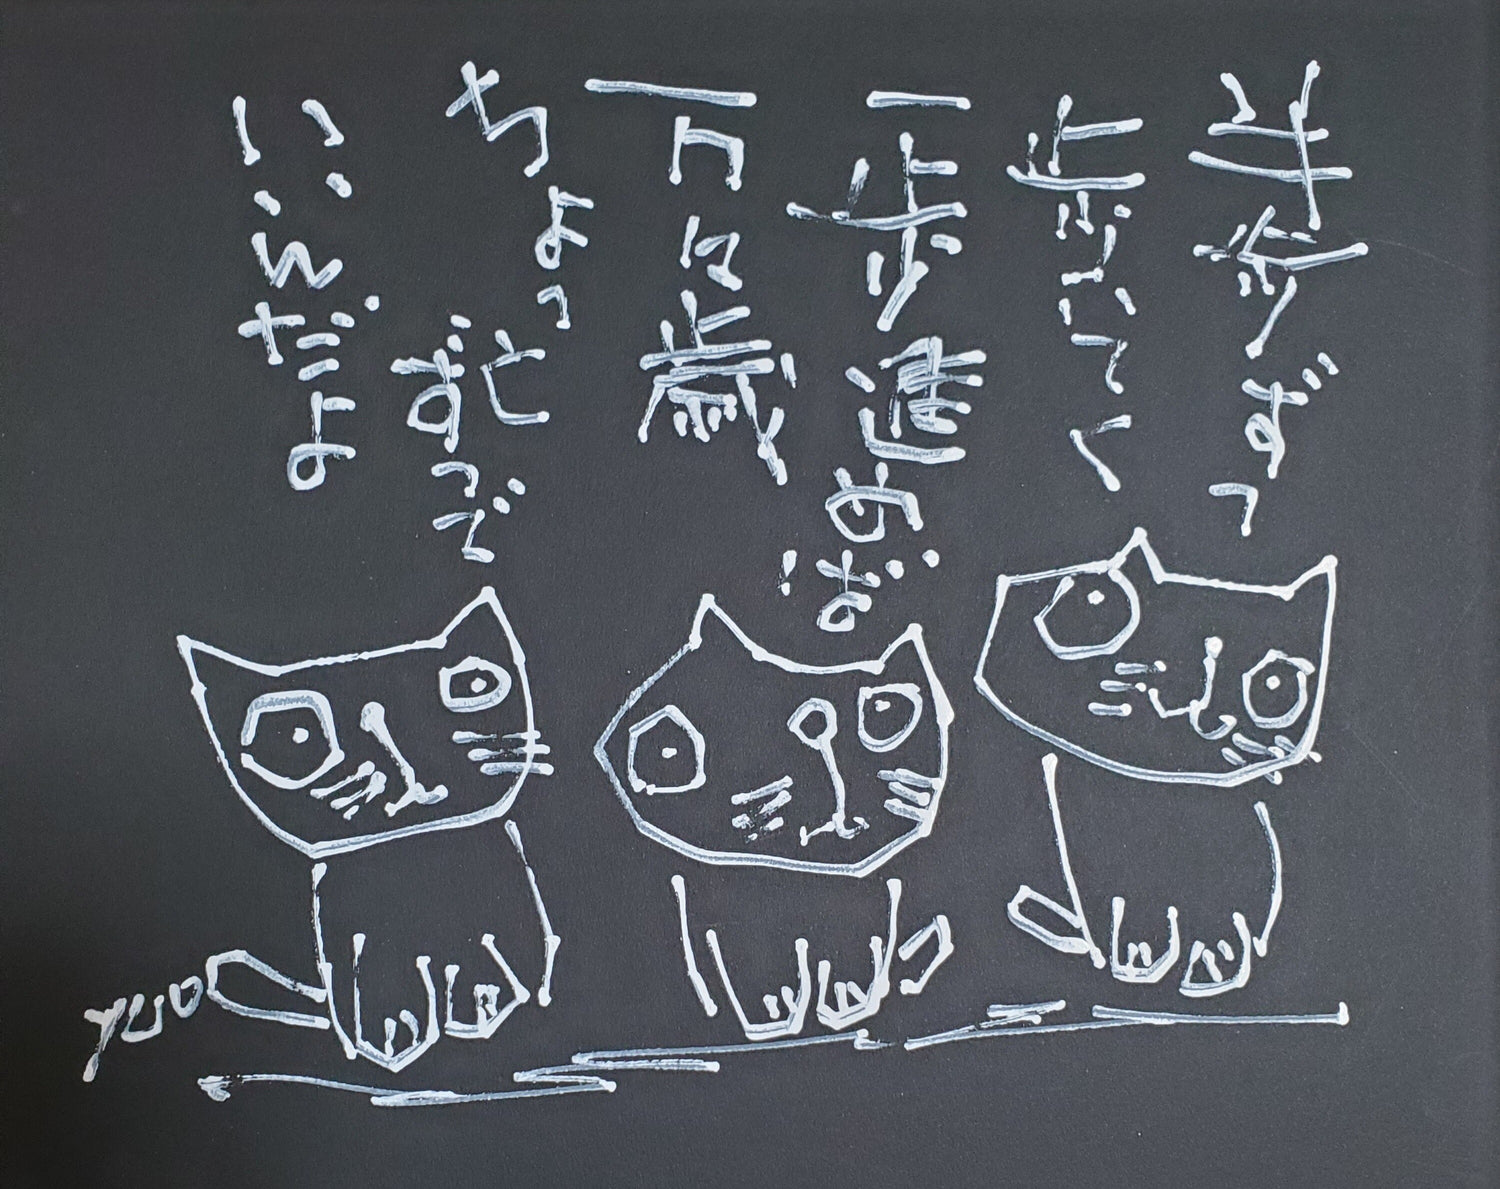 半歩ずつ
歩いてく
一歩進めば
万々歳
ちょっとずつで
いいんだよ
yuo